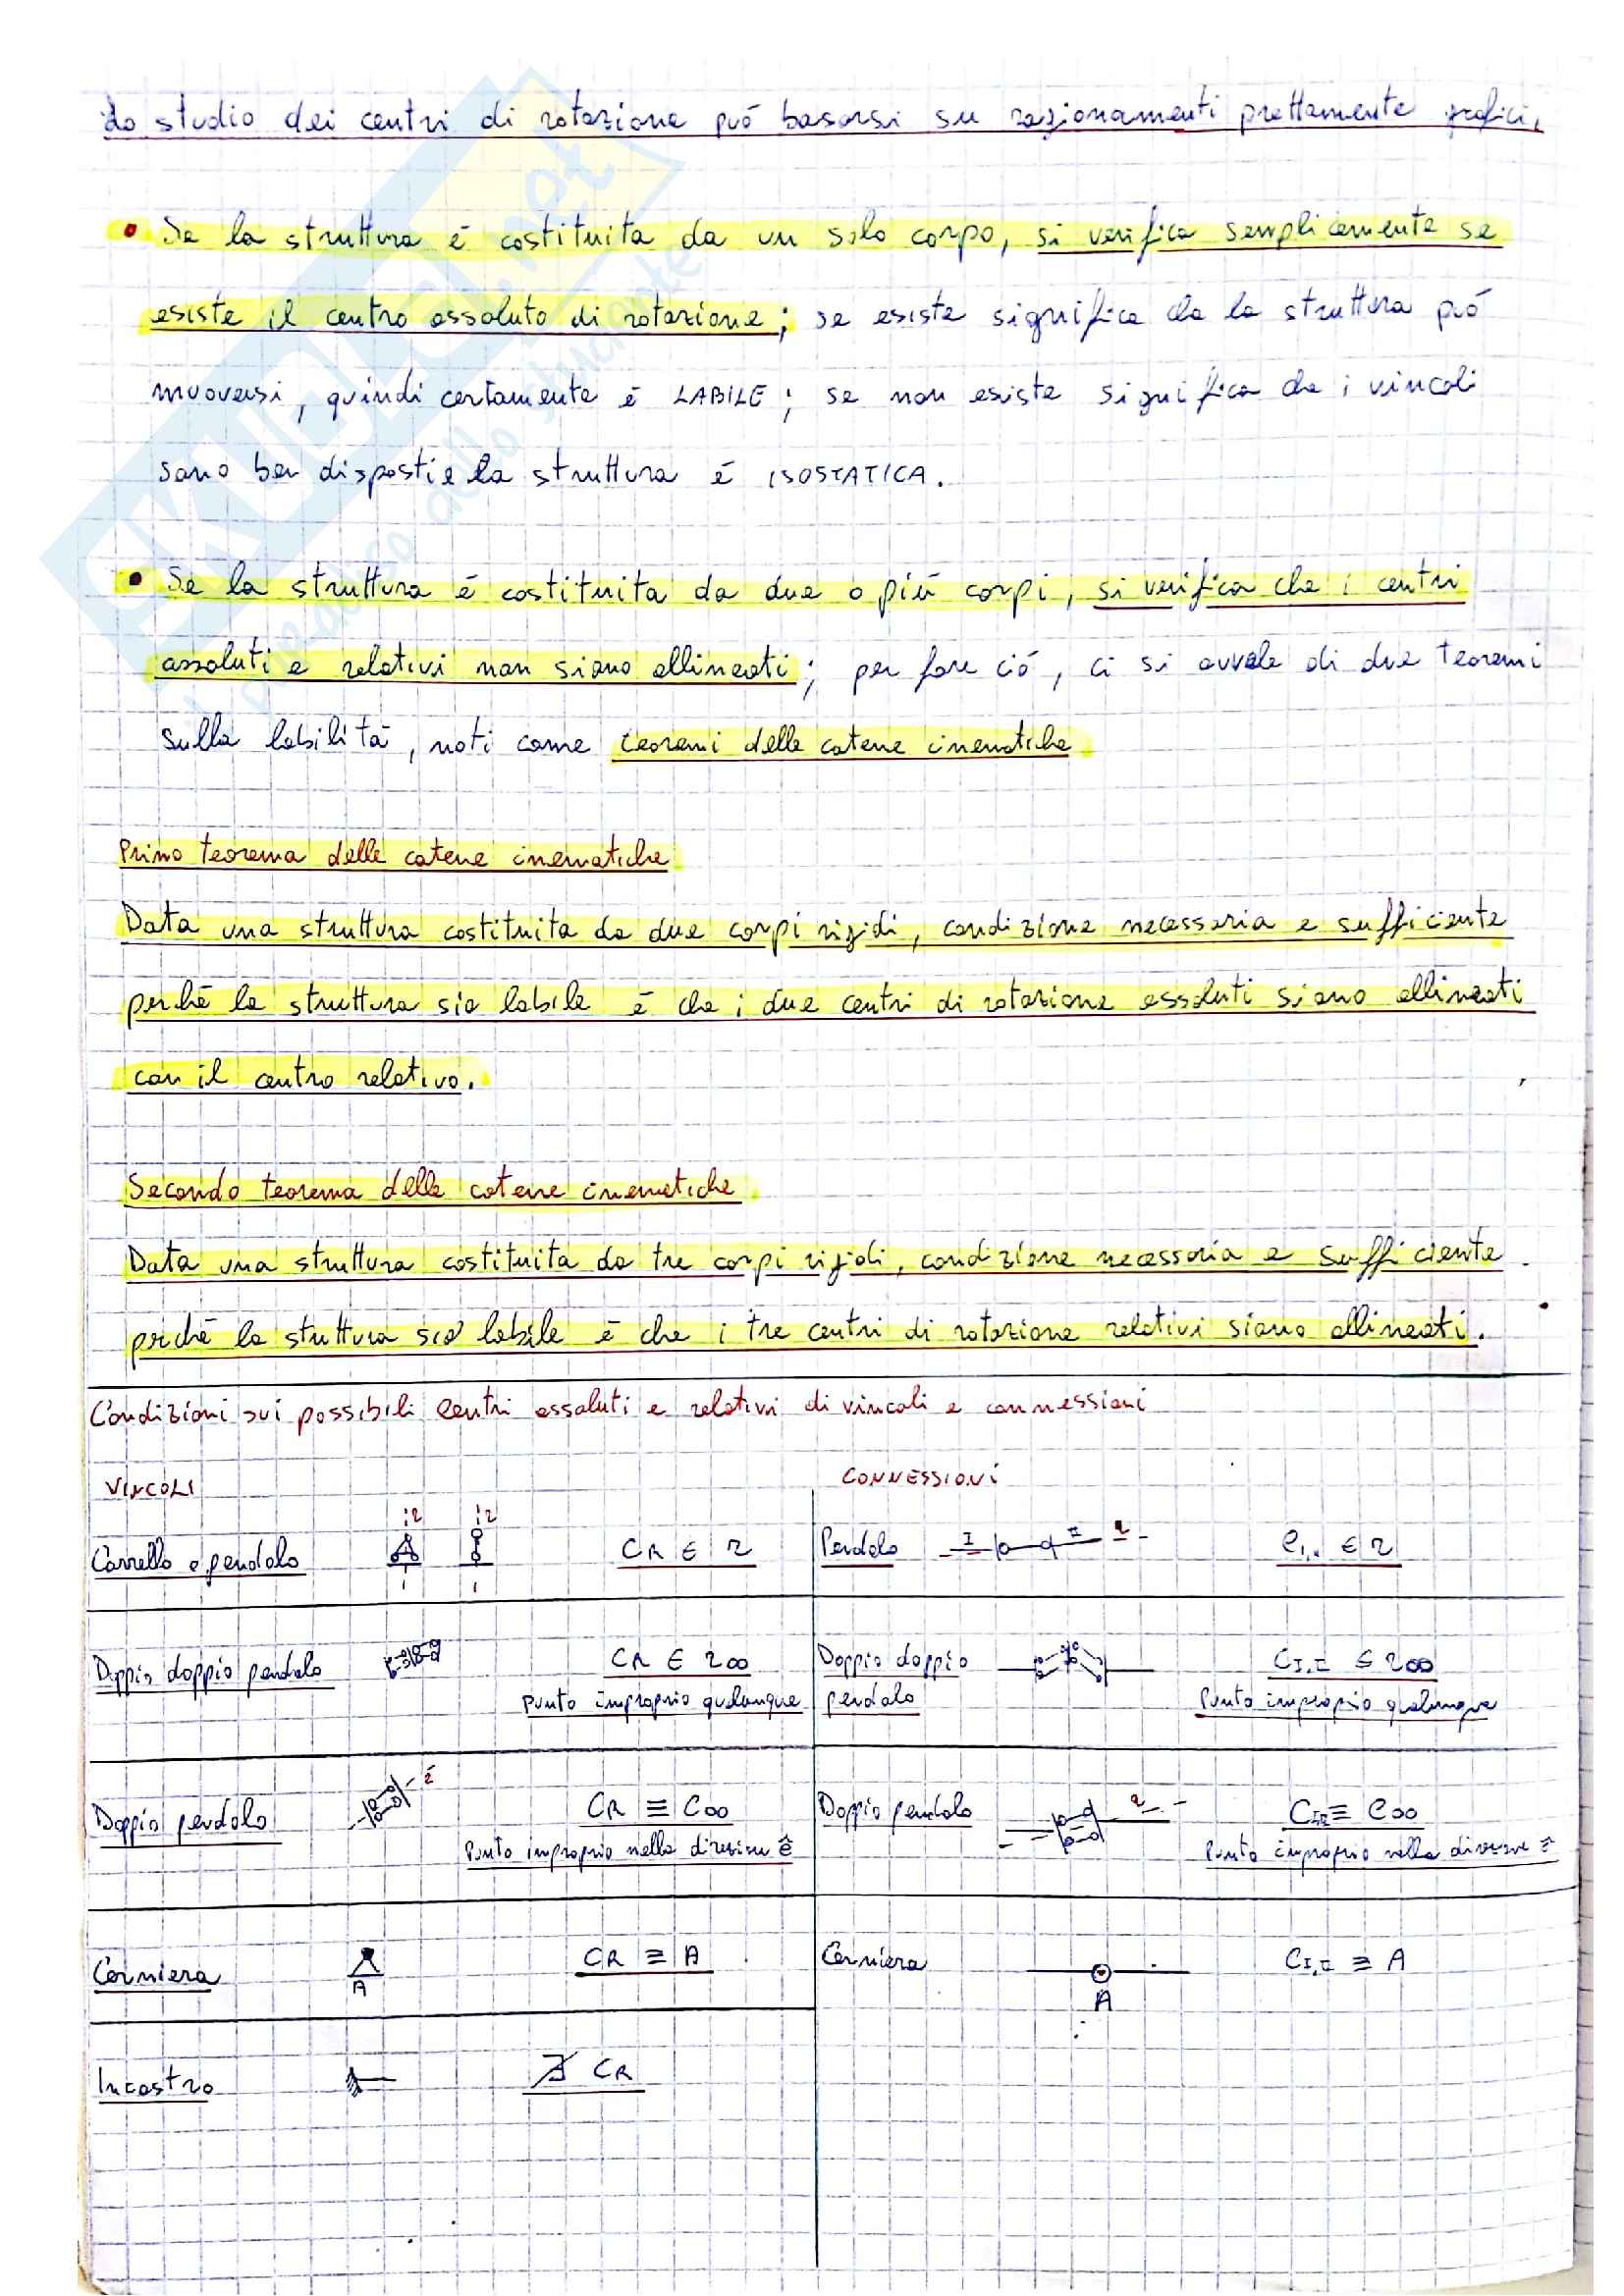 Lo studio dei centri di rotazione può basarsi su ragionamenti prettamente grafici.
• Se la struttura è costituita da un solo corpo, si verifica semplicemente se
esiste il centro assoluto di rotazione; se esiste significa che la struttura può
muoversi, quindi certamente è LABILE; se non esiste significa che i vincoli
sono ben disposti e la struttura è ISOSTATICA.
• Se la struttura è costituita da due o più corpi, si verifica che i centri
assoluti e relativi non siano allineati; per fare ciò, ci si avvale di due teoremi
sulla labilità, noti come teoremi delle catene cinematiche
Primo teorema delle catene cinematiche
Data una struttura costituita da due corpi rigidi, condizione necessaria e sufficiente
perché la struttura sia labile è che i due centri di rotazione assoluti siano allineati
con il centro relativo.
Secondo teorema delle catene cinematiche
Data una struttura costituita da tre corpi rigidi, condizione necessaria e sufficiente
perché la struttura sia labile è che i tre centri di rotazione relativi siano allineati.
Condizioni sui possibili centri assoluti e relativi di vincoli e connessioni
VINCOLI
CONNESSIONI
r r
Carrello e pendolo CR ∈ r
Pendolo I II r ∈ r
Doppio doppio pendolo CR ∈ r∞
Punto improprio qualunque
Doppio doppio
pendolo
CI,II ∈ r∞
Punto improprio qualunque
Doppio pendolo CR ≡ C∞
Punto improprio nella direzione ê
Doppio pendolo r CI,II ≡ C∞
Punto improprio nella direzione ê
Cerniera A CR ≡ A
Cerniera A CI,II ≡ A
Incastro ∄ CR
SKUOLA.net